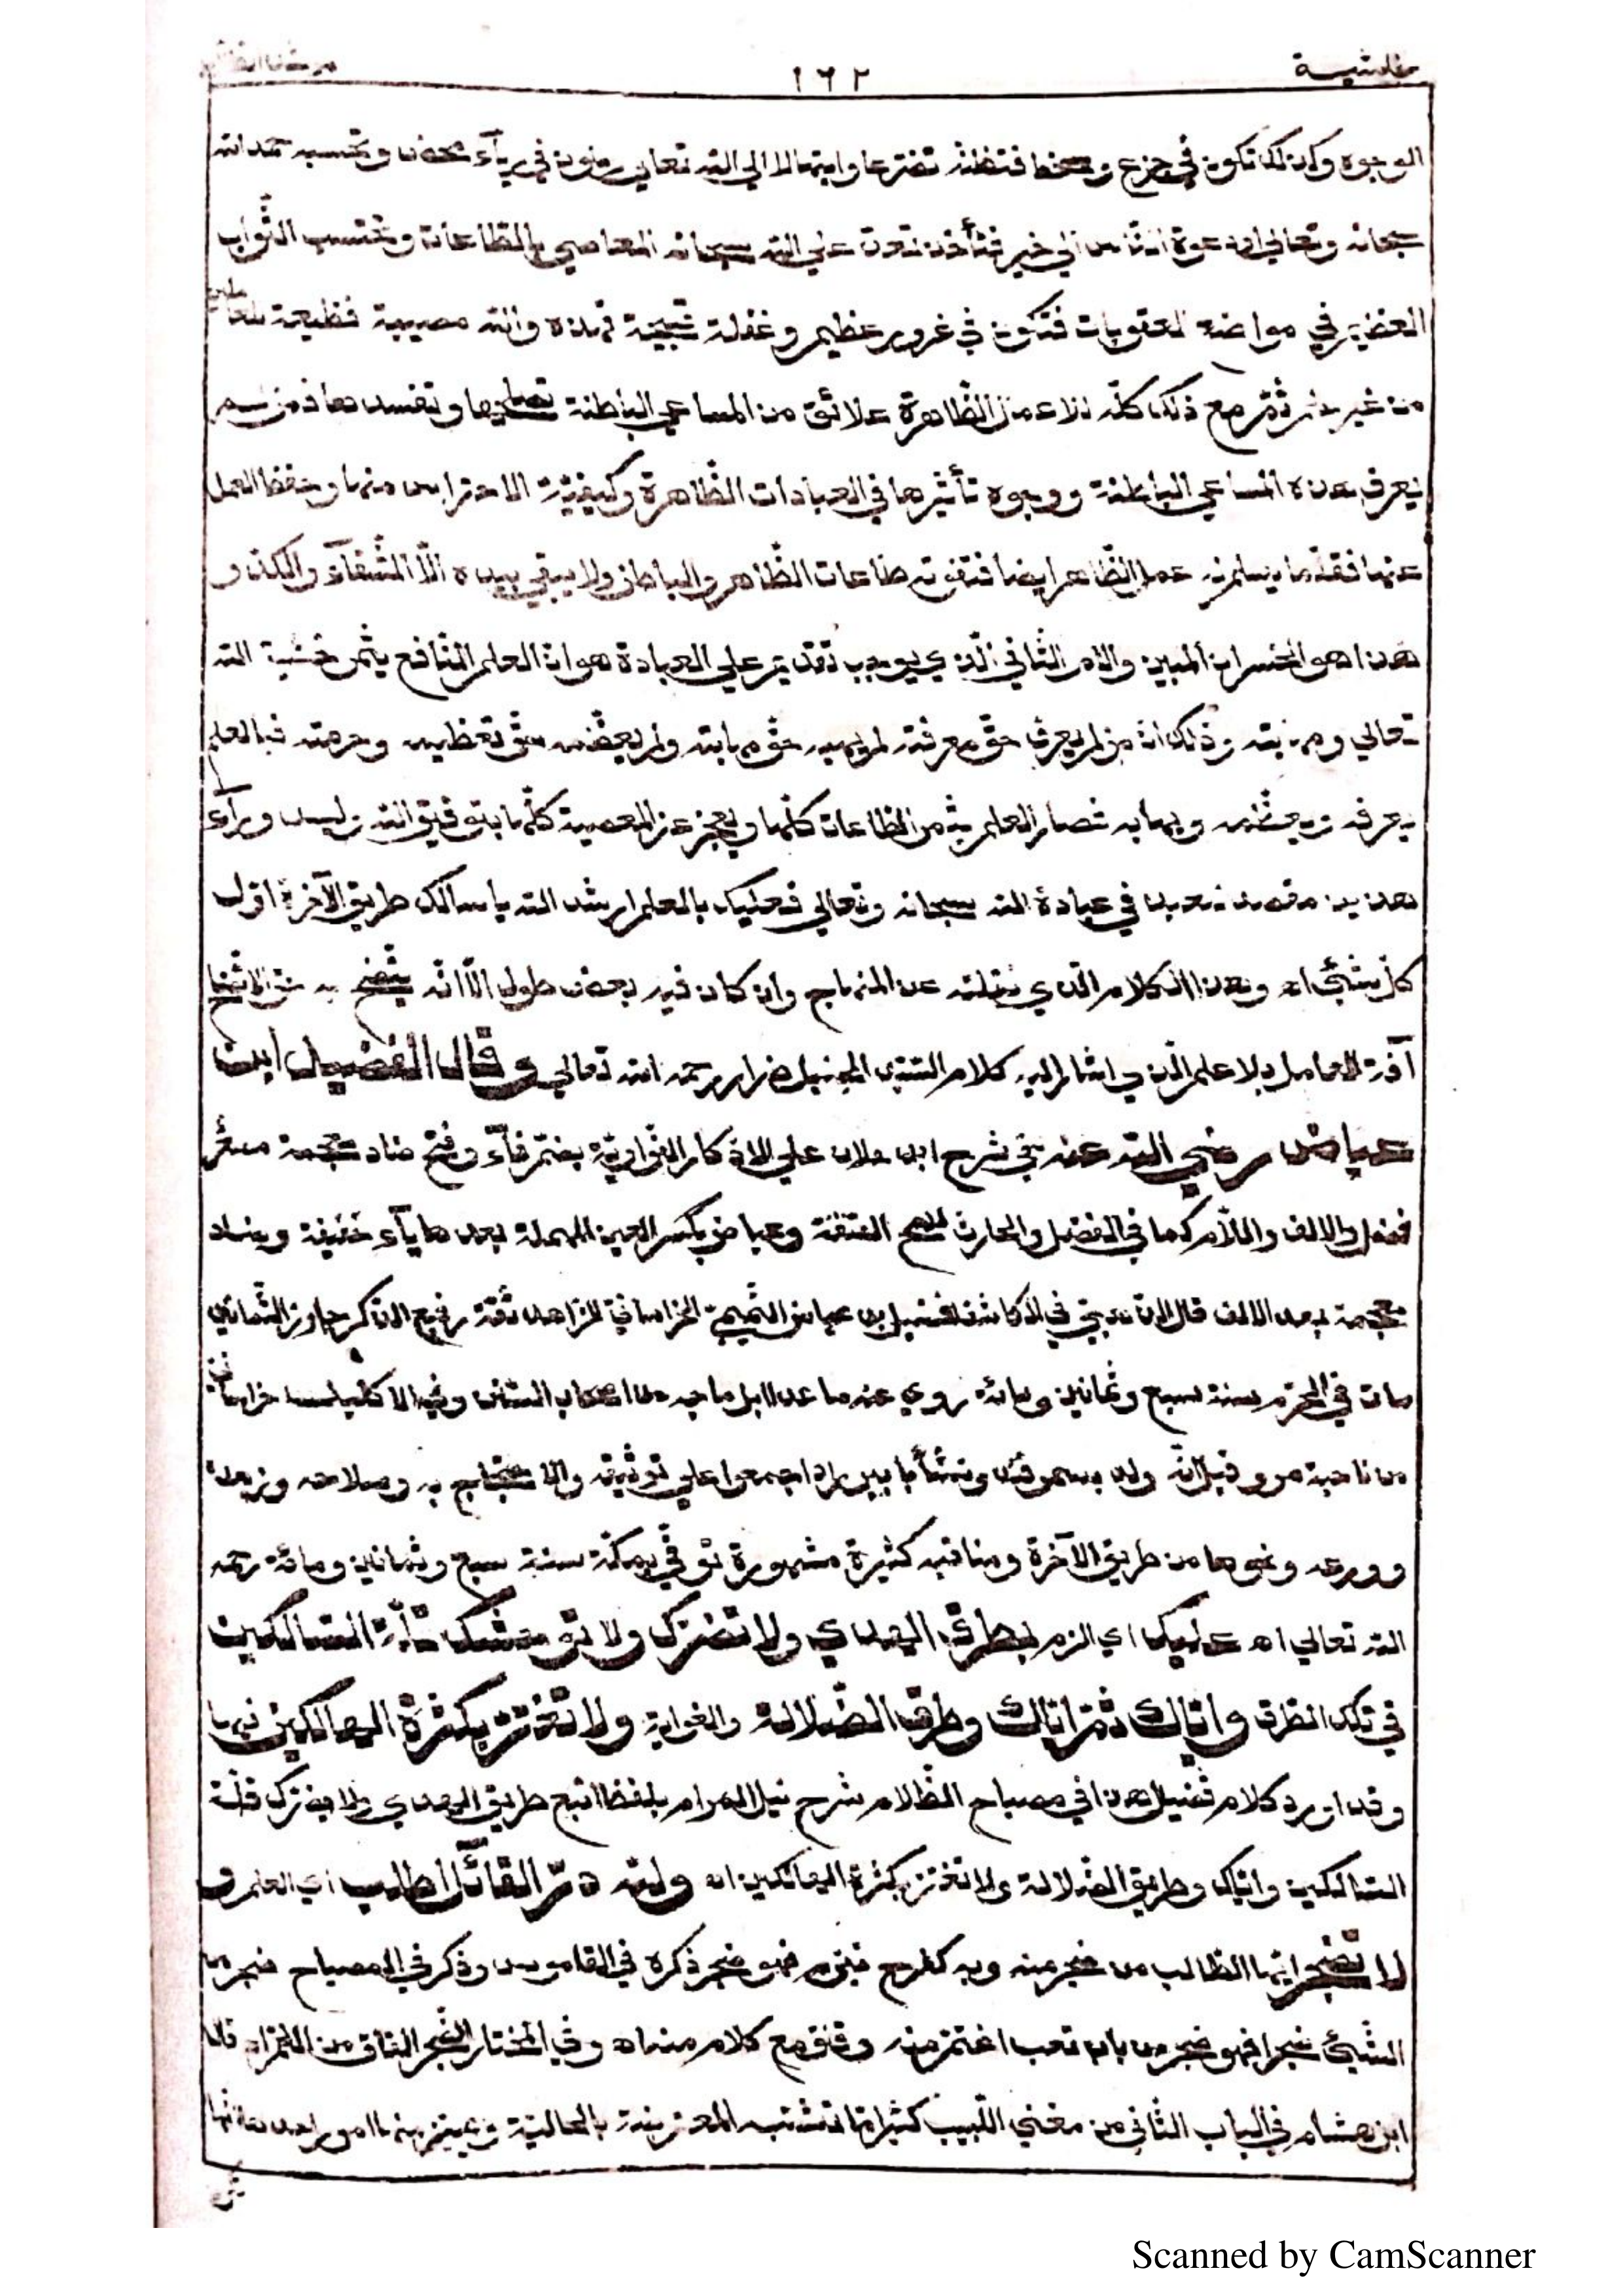 حاشية ١٦٢
الوجوه وكذلك تكون في جزع وسخط فتظنه تضرعا وابتهالا الى الله تعالى وتكون في رياء محض وتحسبه حمدا لله
سبحانه وتعالى او دعوة الناس الى خير فتأخذ تعد على الله سبحانه المعاصي بالطاعات وتحتسب الثواب
العظيم في مواضع العقوبات فتكون في غرور عظيم وغفلة قبيحة فهذه والله مصيبة فظيعة للعاملين
من غير علم ثم مع ذلك كله للاعمال الظاهرة علائق من المساعي الباطنة تصلحها وتفسدها فمن لم
يعرف هذه المساعي الباطنة ووجوه تأثيرها في العبادات الظاهرة وكيفية الاحتراس منها وحفظ العمل
عنها فقلما يسلم له عمل الظاهر ايضا فتفوته طاعات الظاهر والباطن ولا يبقى بيده الا الشقاء والكد و
هذا هو الخسران المبين والامر الثاني الذي يوجب تقديم على العبادة هو ان العلم النافع يثمر خشية الله
تعالى ومهابته وذلك ان من لم يعرف حق معرفته لم يهبه حق مهابته ولم يعظمه حق تعظيمه وحرمته فبالعلم
يعرفه ويعظمه ويهابه فصار العلم يثمر الطاعات كلها ويحجز عن المعصية كلها بتوفيق الله وليس وراء
هذين مقصد للعبد في عبادة الله سبحانه وتعالى فعليك بالعلم ارشدك الله يا سالك طريق الآخرة اول
كل شيء اه وهذا الكلام الذي نقلته عن المنهاج وان كان فيه بعض طول الا انه يتضح به حق الاتضاح
آفة العامل بلا علم الذي اشار اليه كلام السيد الجليل ضرار رحمه الله تعالى وقال الفضيل ابن
عياض رضي الله عنه في شرح ابن علان على الاذكار النواوية بضم فاء وفتح ضاد معجمة مصغر
فضل والالف واللام كما في الفضل والحارث للمح الصفة وعياض بكسر العين المهملة بعدها ياء خفيفة وضاد
معجمة بعد الالف قال الذهبي في الكاشف فضيل بن عياض التميمي الخراساني الزاهد ثقة رفيع الذكر جاوز الثمانين
مات في المحرم سنة سبع وثمانين ومائة روى عنه ما عدا ابن ماجه من اصحاب السنن وفي الاكليل خراساني
من ناحية مرو قيل انه ولد بسمرقند ونشأ بابيورد اجمعوا على توثيقه والاحتجاج به وصلاحه وزهده
وورعه ونحوها من طريق الآخرة ومناقبه كثيرة مشهورة توفي بمكة سنة سبع وثمانين ومائة رحمه
الله تعالى اه عليك اي الزم بطرق الهدي ولا تضرك ولا توحشك قلة السالكين
في تلك الطرق واياك ثم اياك وطرق الضلالة والغواية ولا تغتر بكثرة الهالكين فيها
وقد اورد كلام فضيل هذا في مصباح الظلام شرح نيل المرام بلفظ اتبع طريق الهدي ولا يضرك قلة
السالكين واياك وطريق الضلالة ولا تغتر بكثرة الهالكين اه ولله در القائل اطلب اي العلم و
لا تضجر ايها الطالب من ضجر منه وبه كفرح فهو ضجر ذكره في القاموس وذكر في المصباح ضجر من
الشيء ضجرا فهو ضجر من باب تعب اغتم منه وقلق مع كلام منه اه وفي المختار الضجر القلق من الغم اه قال
ابن هشام في الباب الثاني من مغني اللبيب كثيرا ما تشتبه المعترضة بالحالية ويميزها منها امور احدها انها